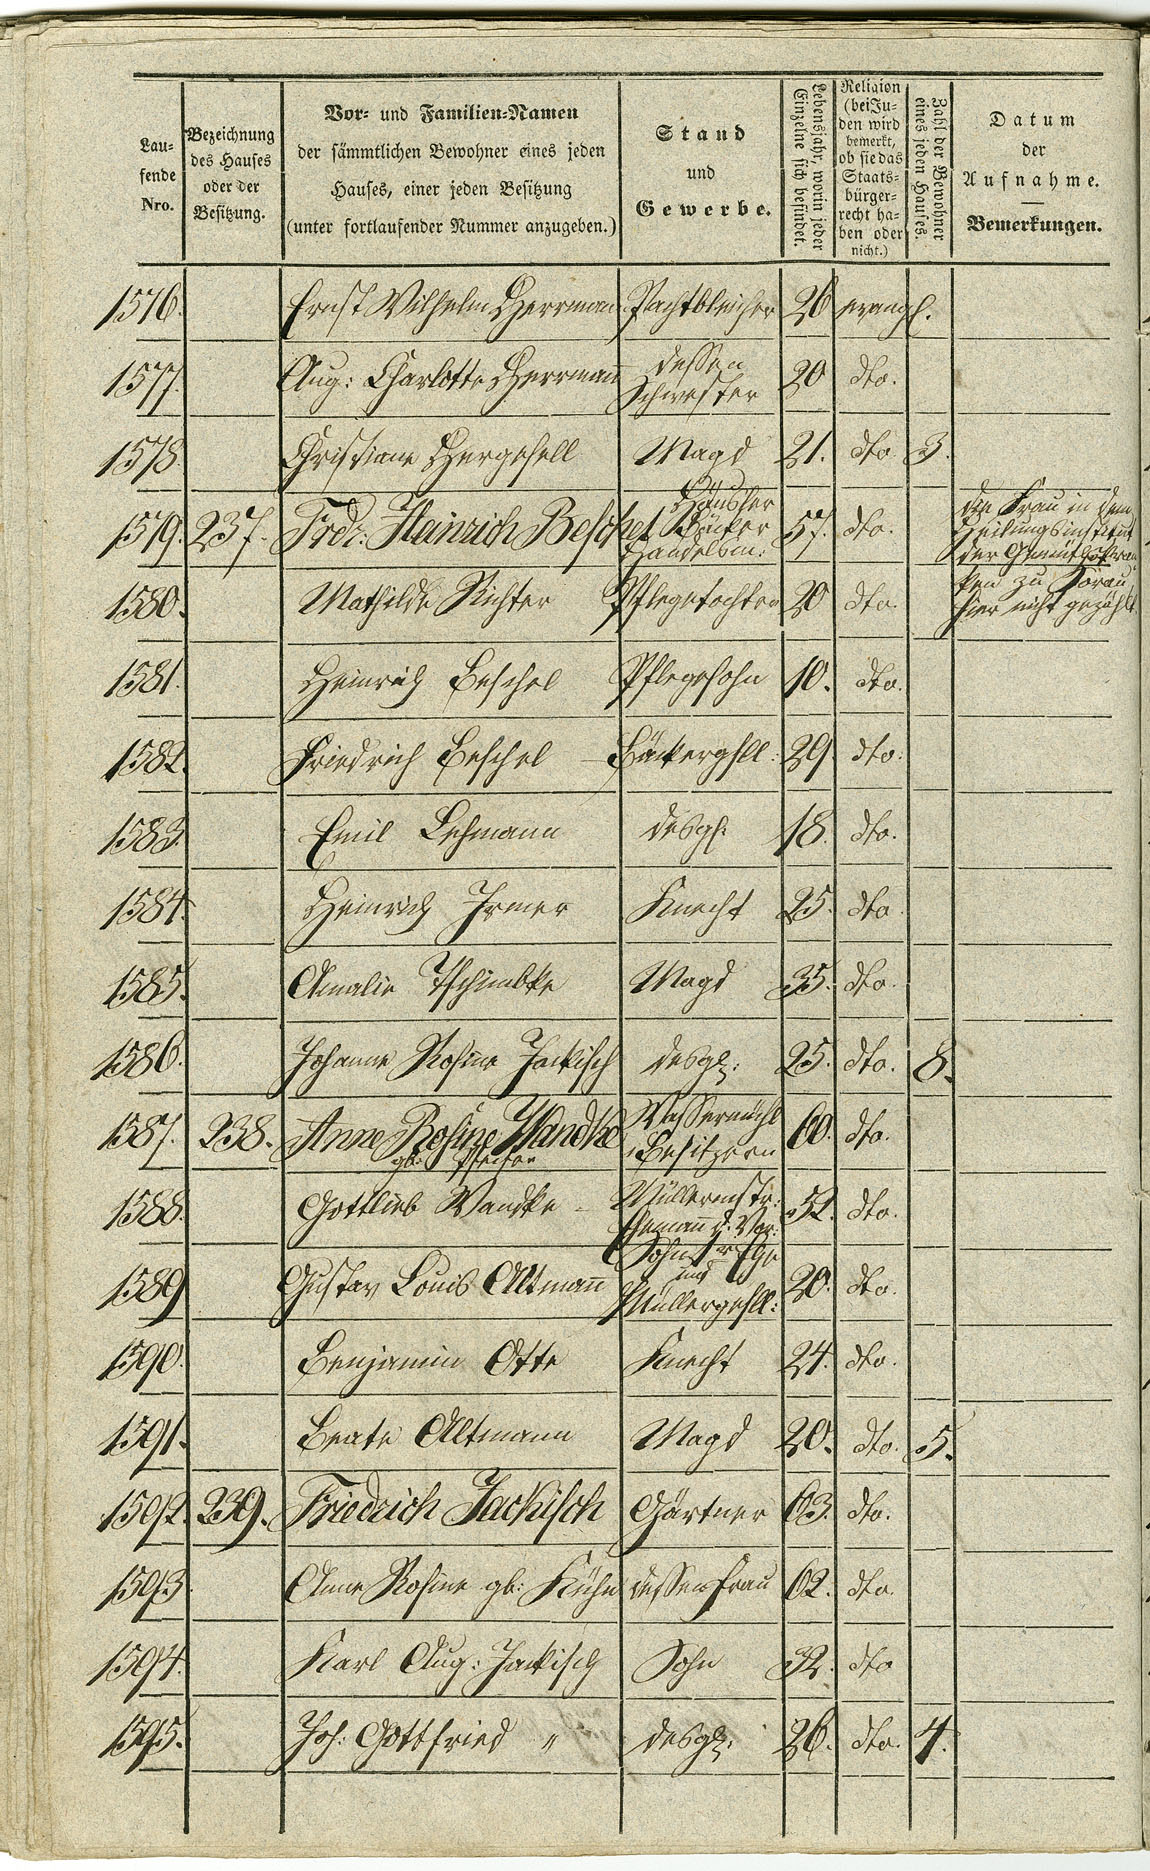 Laufende Nro.
Bezeichnung des Hauses oder der Besitzung.
Vor- und Familien-Namen
der sämmtlichen Bewohner eines jeden
Hauses, einer jeden Besitzung
(unter fortlaufender Nummer anzugeben.)
Stand
und
Gewerbe.
Lebensjahr, worin jeder Einzelne sich befindet.
Religion (bei Juden wird bemerkt, ob sie das Staatsbürgerrecht haben oder nicht.)
Zahl der Bewohner eines jeden Hauses.
Datum
der
Aufnahme.
Bemerkungen.
1576. Ernst Wilhelm Herrmann Pachtbleicher 26 evangl.
1577. Aug: Charlotte Herrmann dessen Schwester 20 dto.
1578. Christiane Hergesell Magd 21. dto. 3.
1579. 237. Frdr: Heinrich Beschel Häusler Bäcker Handelsm: 57. dto. die Frau in dem
Heilungsinstitut
der Gemüthskran
ken zu Sorau,
hier nicht gezählt.
1580. Mathilde Richter Pflegetochter 20 dto.
1581. Heinrich Beschel Pflegesohn 10. dto.
1582. Friedrich Beschel Bäckergsll: 29 dto.
1583. Emil Lehmann desgl: 18. dto.
1584. Heinrich Irmer Knecht 25. dto.
1585. Amalie Tschimbke Magd 35. dto.
1586. Johanne Rosine Jackisch desgl: 25. dto. 8.
1587. 238. Anne Rosine Wandke Wassermühl
gb: Besitzerin 60. dto.
1588. Gottlieb Wandke Müllermstr: Ehemann d. Vor: 52. dto.
1589 Gustav Louis Altmann Sohn 1r Ehe und Müllergesll: 20. dto.
1590. Benjamin Otte Knecht 24. dto.
1591. Beate Altmann Magd 20. dto. 5.
1592. 239. Friedrich Jackisch Gärtner 63. dto.
1593 Anne Rosine gb: Kühn dessen Frau 62. dto.
1594. Karl Aug: Jackisch Sohn 32. dto
1595. Joh: Gottfried " desgl: 26. dto. 4.